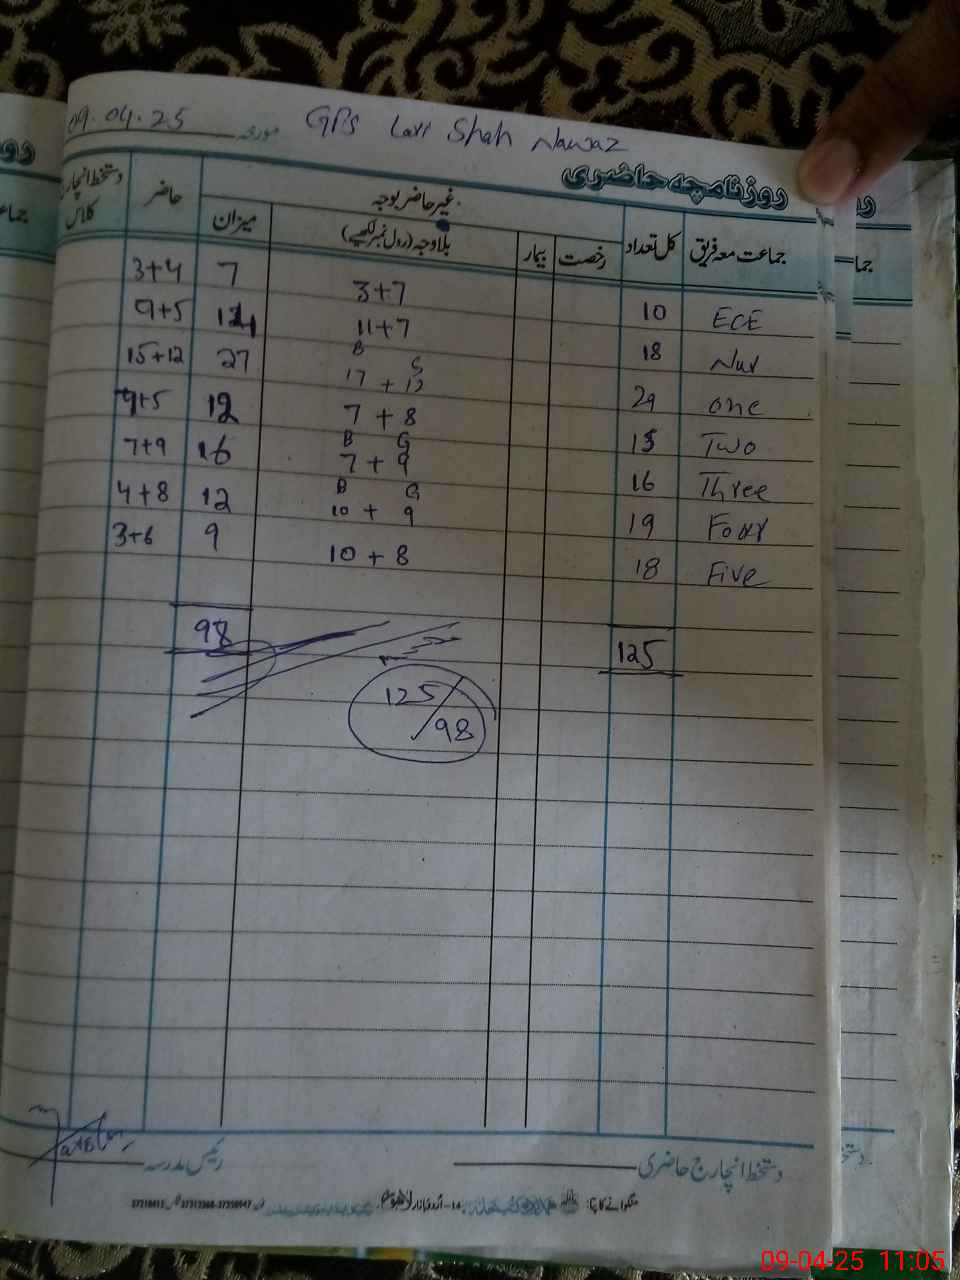 09.04.25 مورخہ GPS Lavi Shah Nawaz
روزنامچہ حاضری
جماعت معہ فریق کل تعداد غیر حاضر بوجہ حاضر دستخط انچارج کلاس
رخصت بیمار بلاوجہ (رول نمبر لکھیے) میزان
ECE 10 3+7 7 3+4
Nur 18 11+7 14 9+5
B G
one 29 17 + 12 27 15+12
Two 15 7 + 8 12 +5
B G
Three 16 7 + 9 16 7+9
B G
Four 19 10 + 9 12 4+8
Five 18 10 + 8 9 3+6
125 98
125/98
دستخط انچارج حاضری رئیس مدرسہ
منگوانے کا پتا: 14-اردو بازار لاہور
09-04-25 11:05